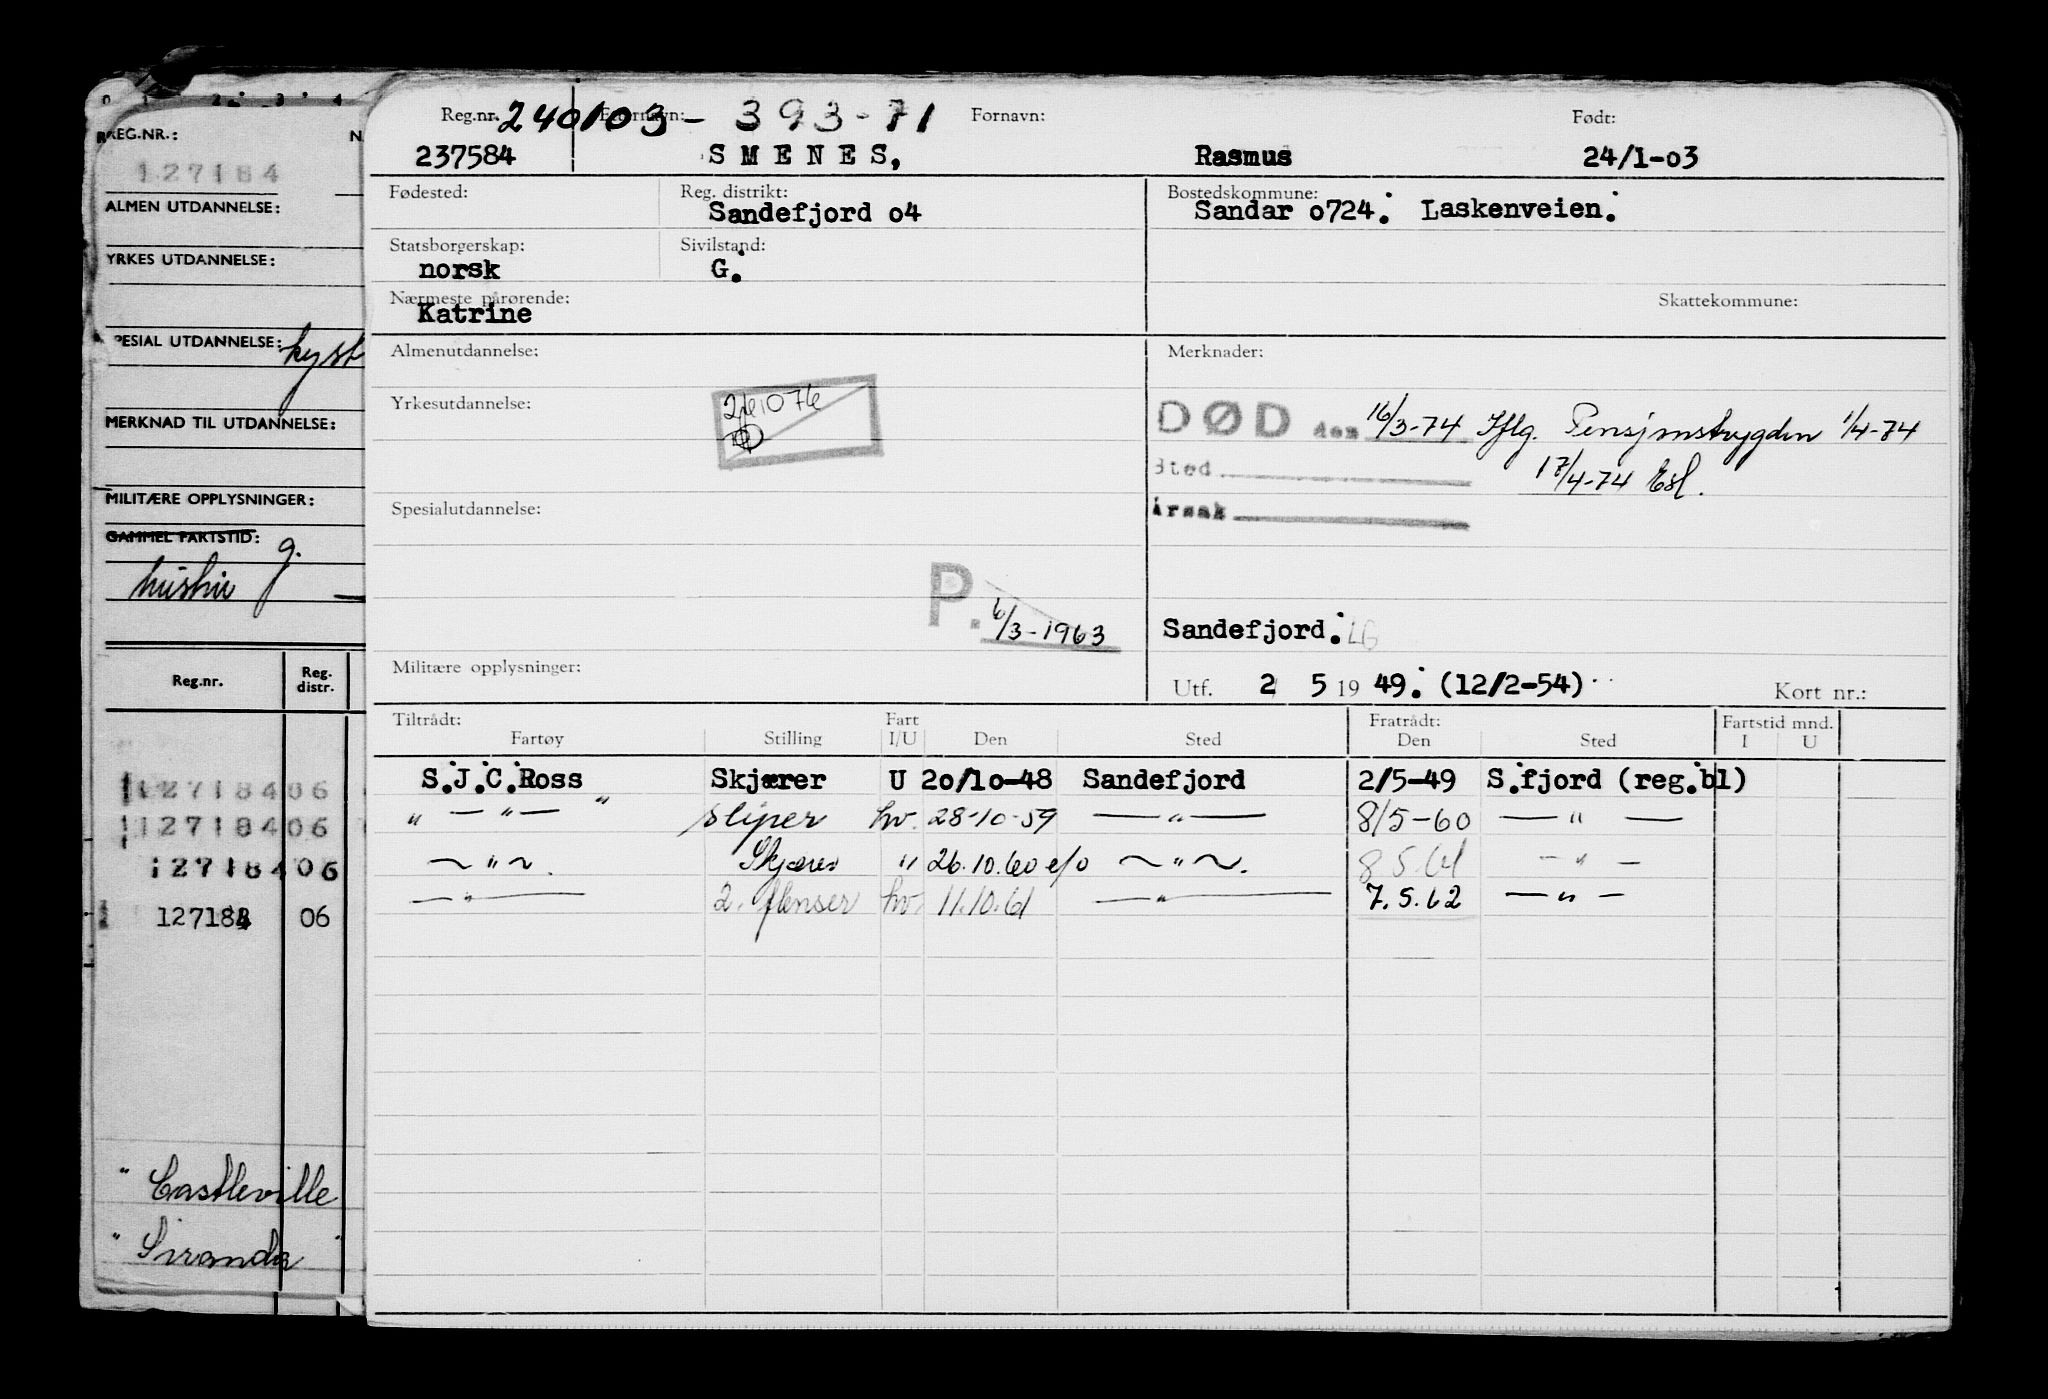 0 1 2 3 4
REG.NR.:
127184
ALMEN UTDANNELSE:
YRKES UTDANNELSE:
SPESIAL UTDANNELSE: kyst
MERKNAD TIL UTDANNELSE:
MILITÆRE OPPLYSNINGER:
GAMMEL FARTSTID:
g.
Reg.nr. Reg. distr.
127184 06
127184 06
127184 06
127184 06
" Castleville
" Siranda "
Reg.nr. Etternavn: Fornavn: Født:
240103 - 393-71
237584 SMENES, Rasmus 24/1-03
Fødested: Reg. distrikt: Bostedskommune:
Sandefjord o4 Sandar o724. Laskenveien.
Statsborgerskap: Sivilstand:
norsk G.
Nærmeste pårørende: Skattekommune:
Katrine
Almenutdannelse: Merknader:
Yrkesutdannelse:
DØD den 16/3-74 Iflg. Pensjonstrygden 1/4-74
Sted 17/4-74
Årsak
Spesialutdannelse:
P. 6/3-1963
Sandefjord. LG
Militære opplysninger:
Utf. 2 5 19 49. (12/2-54) Kort nr.:
Tiltrådt: Fart Fratrådt: Fartstid mnd.
Fartøy Stilling I/U Den Sted Den Sted I U
S.J.C.Ross Skjærer U 20/10-48 Sandefjord 2/5-49 S.fjord (reg.bl)
" — " — " sliper hv. 28-10-59 — " — 8/5-60 — " —
~ " ~. Skjærer " 26.10.60 e/o ~ " ~. 8.5.61 — " —
— " — 2. flenser hv. 11.10.61 — " — 7.5.62 — " —